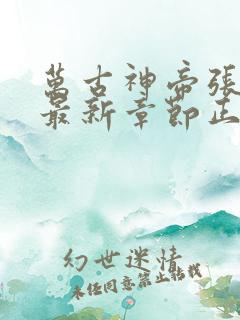 萬古神帝張
最新章節正
幻世迷情
未經同意禁止轉載